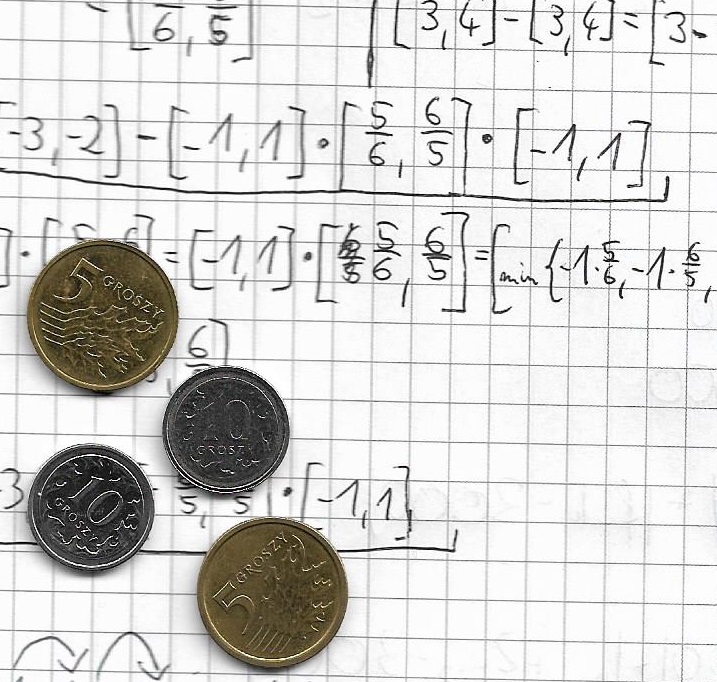 - [ 5/6, 6/5 ] [3,4]-[3,4]=[3-
-3,-2]-[-1,1]·[5/6, 6/5]·[-1,1]
]·[ ]=[-1,1]·[5/6, 6/5]=[min{-1·5/6,-1·6/5,
5 GROSZY
6
10 GROSZY
-3 5, 5]·[-1,1]
10 GROSZY
5 GROSZY